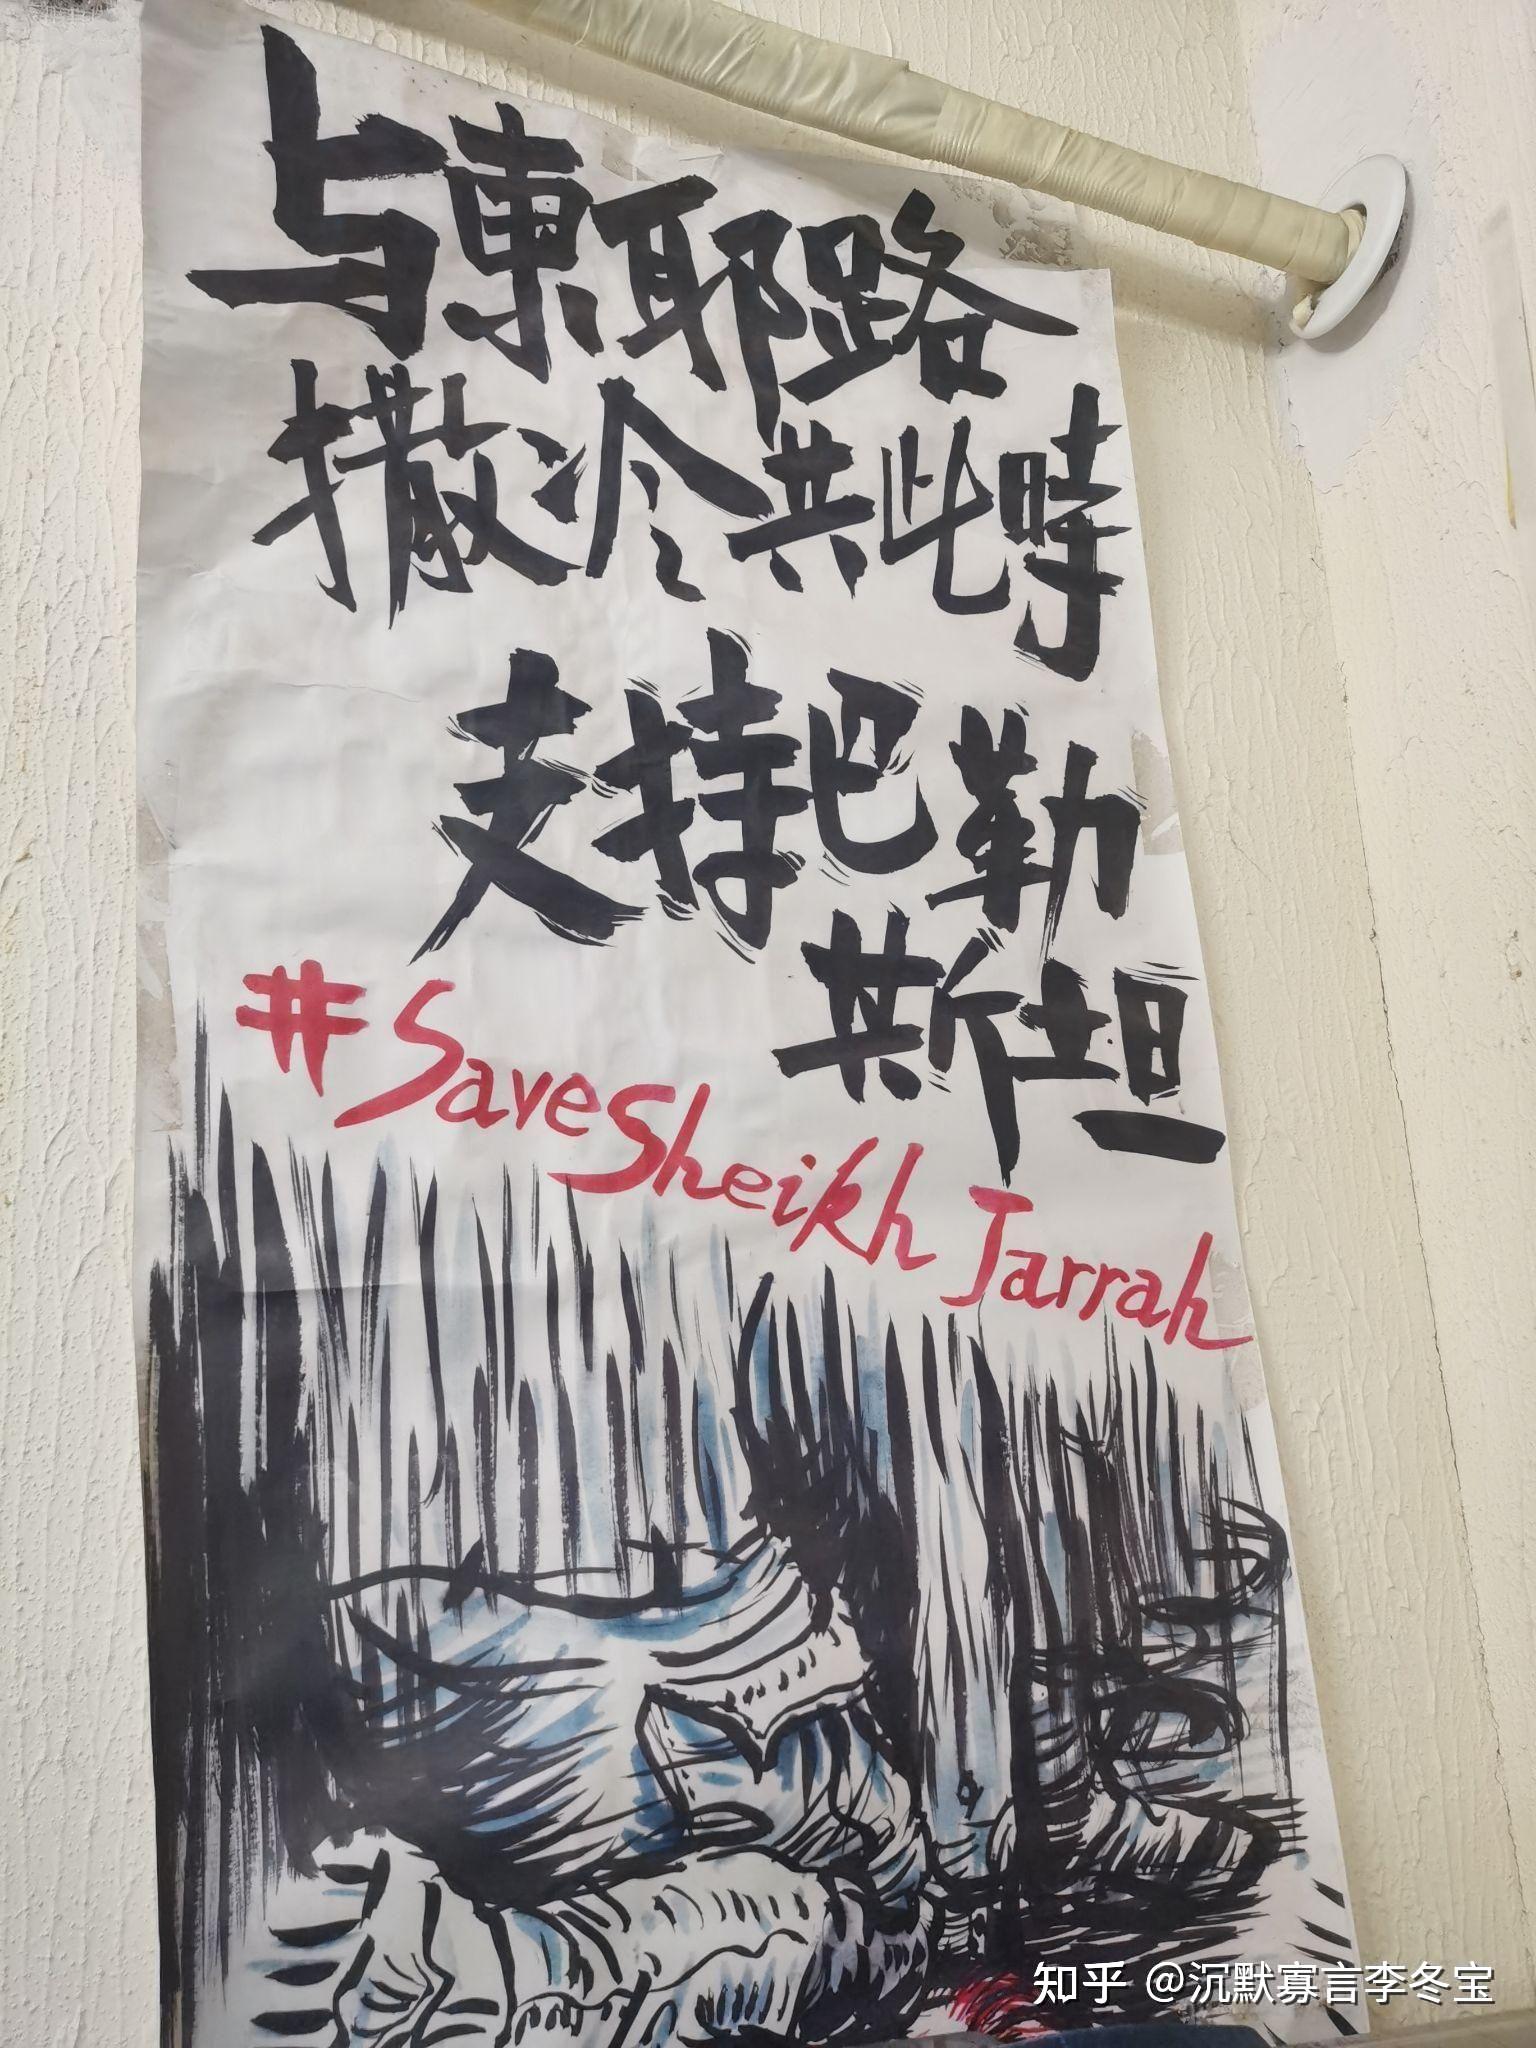 与東耶路
撒冷共此時
支持巴勒
斯坦
#SaveSheikh Jarrah
知乎 @沉默寡言李冬宝